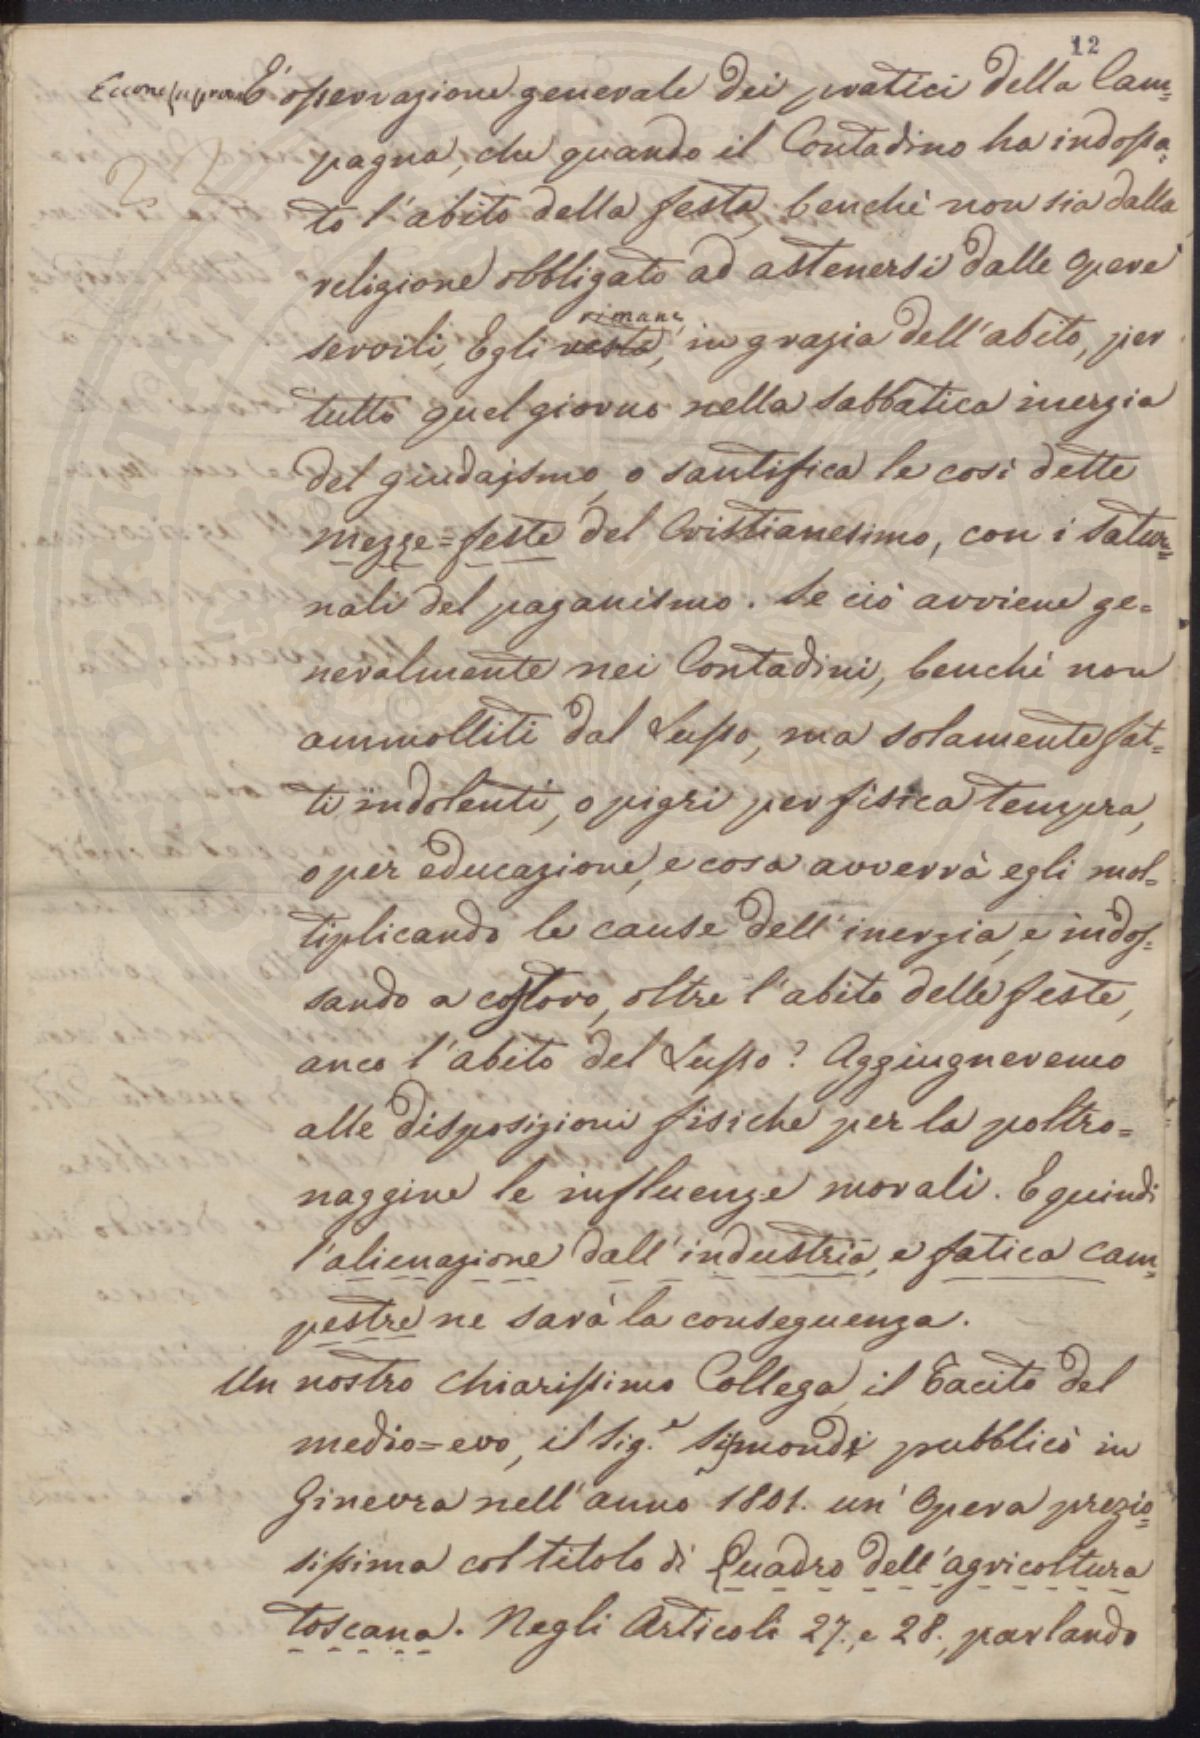 12
Eccone la prova È osservazione generale dei pratici della Cam=
pagna, che quando il Contadino ha indossa=
to l'abito della festa, benchè non sia dalla
religione obbligato ad astenersi dalle opere
servili, Egli resta, rimane, in grazia dell'abito, per
tutto quel giorno nella sabbatica inerzia
del giudaismo, o santifica le così dette
mezze=feste del Cristianesimo, con i Satur=
nali del paganismo. Se ciò avviene ge=
neralmente nei Contadini, benchè non
ammolliti dal Lusso, ma solamente fat=
ti indolenti, o pigri per fisica tempra,
o per educazione, e cosa avverrà egli mol=
tiplicando le cause dell'inerzia, e indos=
sando a costoro, oltre l'abito delle feste,
anco l'abito del Lusso? Aggiugneremo
alle disposizioni fisiche per la poltro=
naggine le influenze morali. E quindi
l'alienazione dall'industria, e fatica cam=
pestre ne sarà la conseguenza.
Un nostro chiarissimo Collega, il Tacito del
medio=evo, il Sig.e Sismondi pubblicò in
Ginevra nell'anno 1801. un'Opera prezio=
sissima col titolo di Quadro dell'agricoltura
toscana. Negli Articoli 27., e 28., parlando